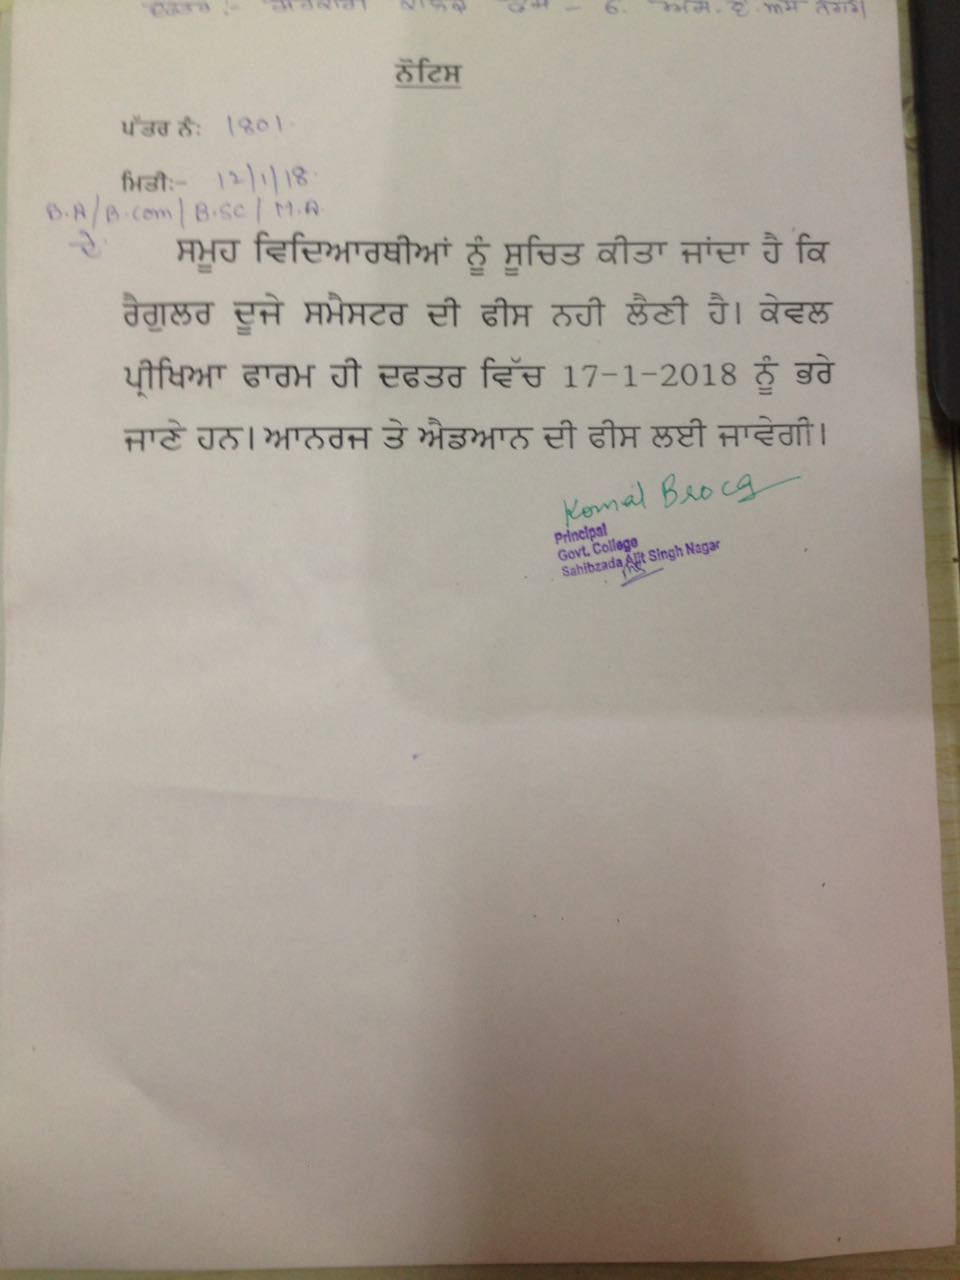 ਦਫਤਰ :- ਸਰਕਾਰੀ ਕਾਲਜ ਫੇਸ - 6. ਐਸ.ਏ.ਐਸ ਨਗਰ।
ਨੋਟਿਸ
ਪੱਤਰ ਨੰ: 1801.
ਮਿਤੀ:- 12/1/18.
B.A/B.com/B.SC/M.A
ਦੇ ਸਮੂਹ ਵਿਦਿਆਰਥੀਆਂ ਨੂੰ ਸੂਚਿਤ ਕੀਤਾ ਜਾਂਦਾ ਹੈ ਕਿ
ਰੈਗੁਲਰ ਦੂਜੇ ਸਮੈਸਟਰ ਦੀ ਫੀਸ ਨਹੀ ਲੈਣੀ ਹੈ। ਕੇਵਲ
ਪ੍ਰੀਖਿਆ ਫਾਰਮ ਹੀ ਦਫਤਰ ਵਿੱਚ 17-1-2018 ਨੂੰ ਭਰੇ
ਜਾਣੇ ਹਨ। ਆਨਰਜ ਤੇ ਐਡਆਨ ਦੀ ਫੀਸ ਲਈ ਜਾਵੇਗੀ।
Komal Broca
Principal
Govt. College
Sahibzada Ajit Singh Nagar